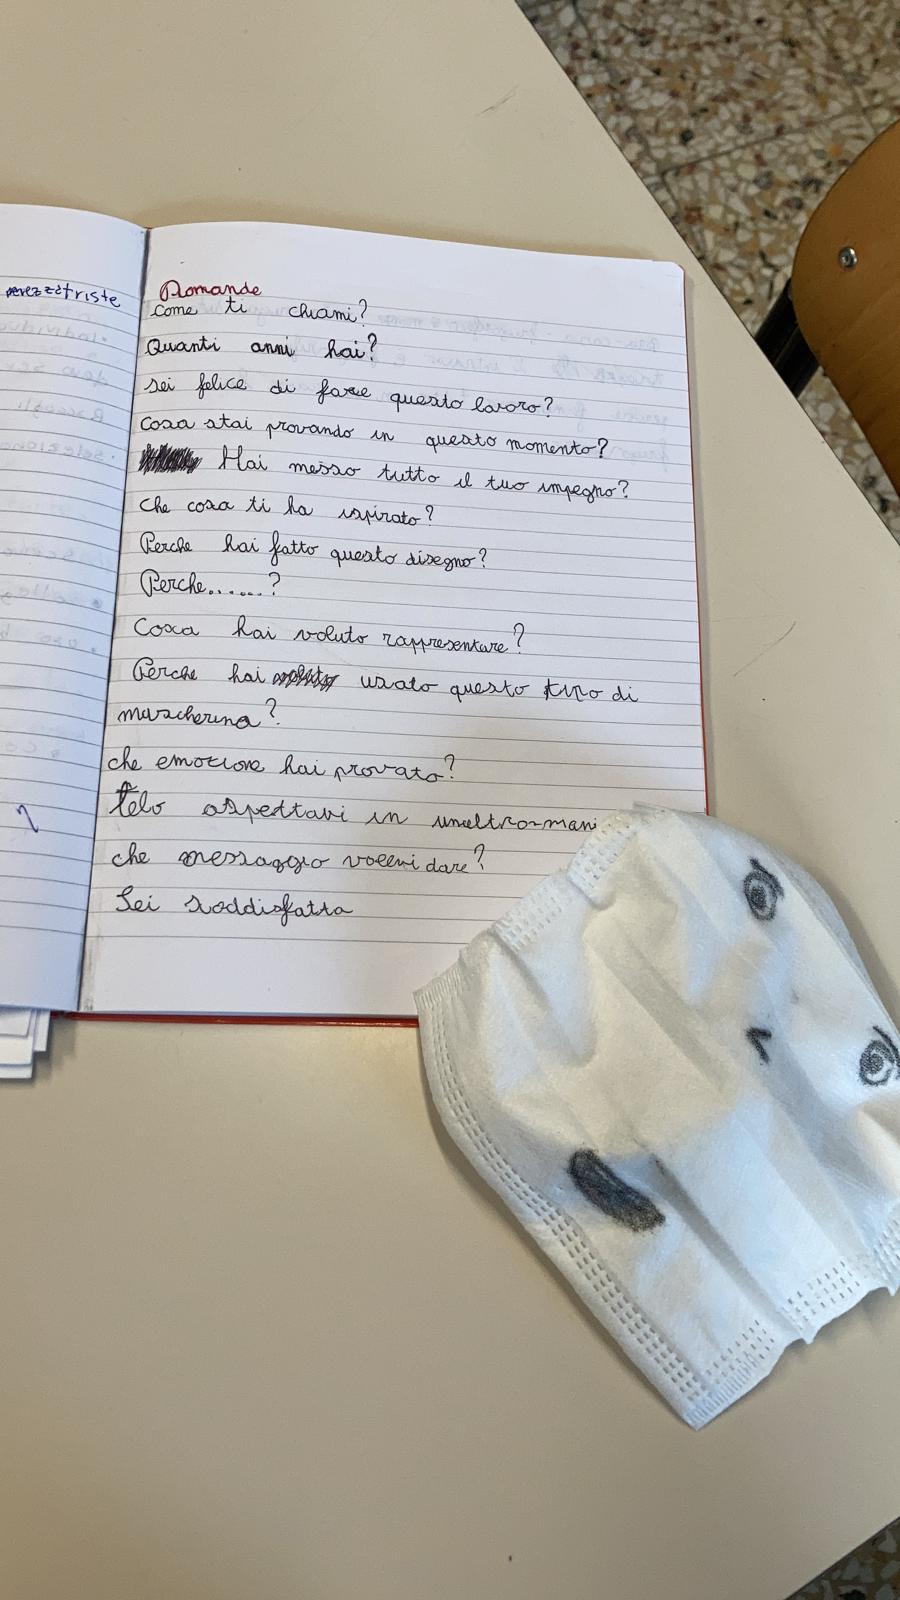 triste
Domande
come ti chiami?
Quanti anni hai?
sei felice di fare questo lavoro?
cosa stai provando in questo momento?
Hai messo tutto il tuo impegno?
che cosa ti ha ispirato?
Perche hai fatto questo disegno?
Perche......?
Cosa hai voluto rappresentare?
Perche hai usato questo tipo di
mascherina?
che emozione hai provato?
telo aspettavi in unaltro-mani
che messaggio volevi dare?
Sei soddisfatta